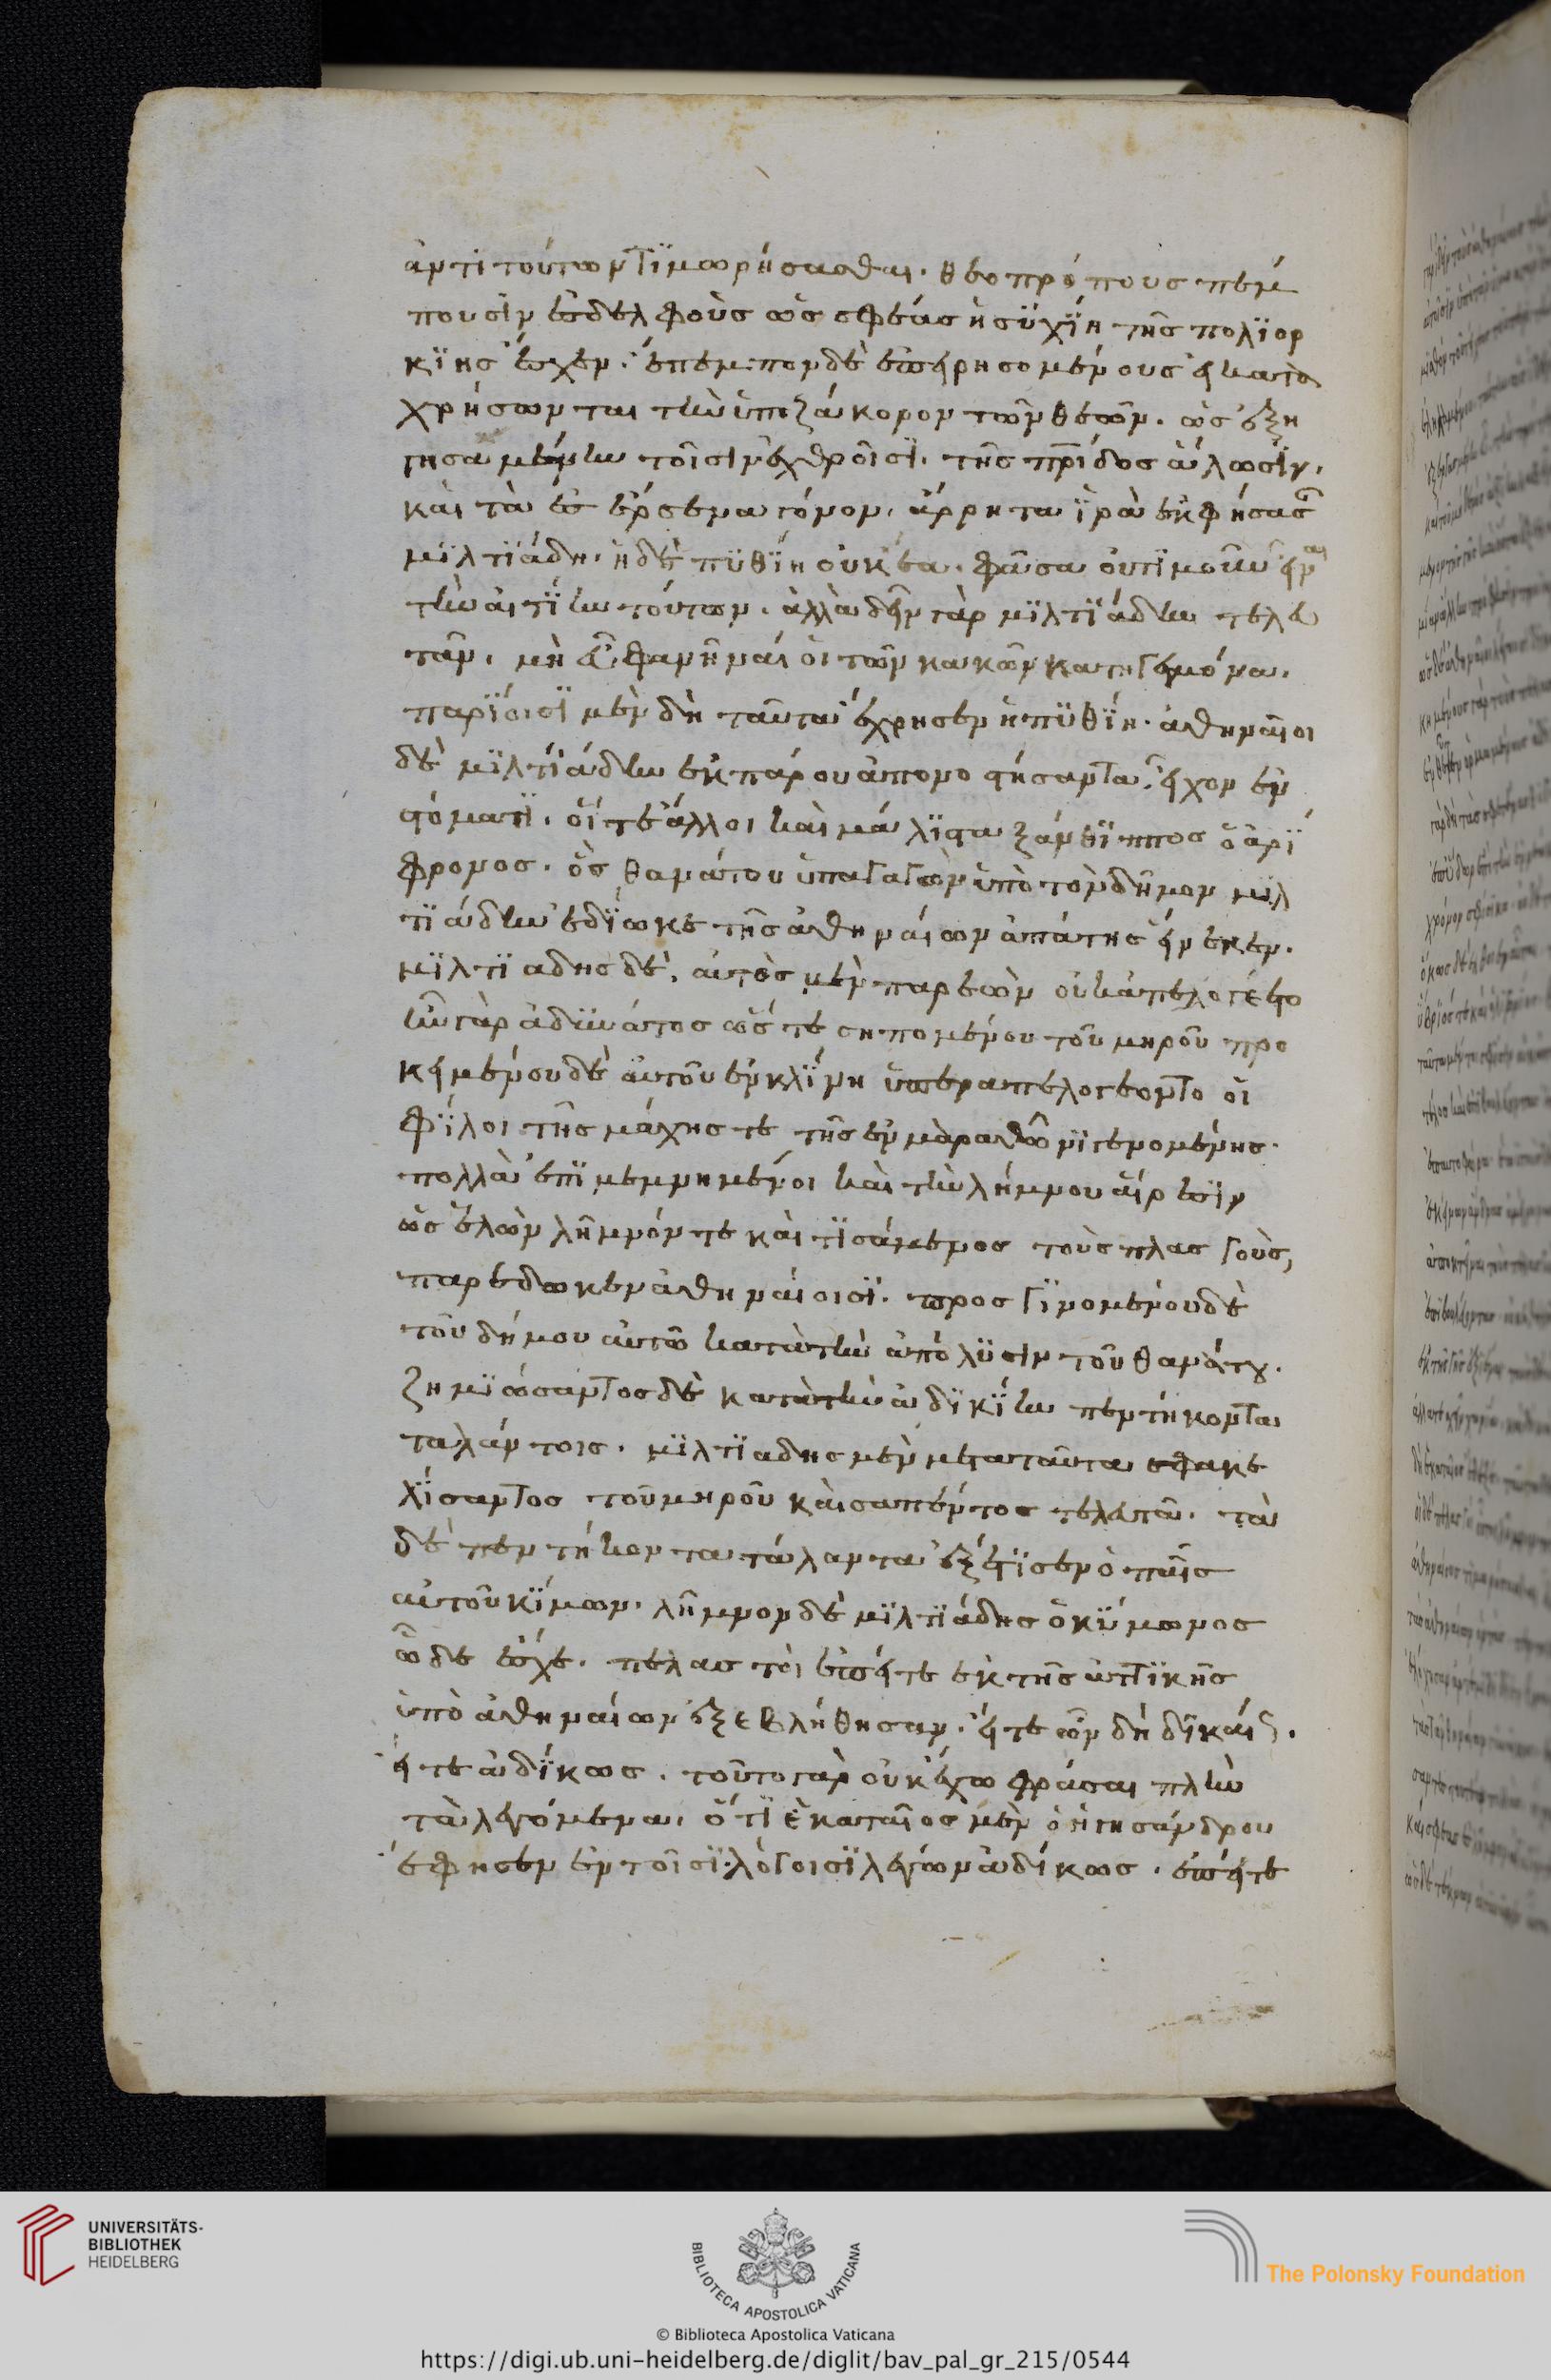 ἀντὶ τούτων τϊμωρήσασθαι. θεοπρόπους πέμ
πουσιν ἐς δελφοὺς ὥς σφεας ἡσϋχΐη τῆς πολϊορ
κΐης ἔσχεν. ἔπεμπον δὲ ἐπειρησομένους εἰ κατα
χρήσωνται τὴν ὑποζάκορον τῶν θεῶν. ὡς ἐξη
γησαμένην τοῖσιν ἐχθροῖσϊ. τῆς πρίδος ἅλωσϊν.
καὶ τὰ ἐς ἔρσενα γόνον. ἄρρητα ἱρὰ ἐκφήσασ
μϊλτϊάδη. ἡ δὲ πϋθΐη οὐκ ἔα. φᾶσα οὐ τϊμοῦν εἶναι
τὴν αἰτΐην τούτων. ἀλλὰ δεῖν γὰρ μϊλτϊάδην τελευ
τᾶν. μὴ εὖ φανῆναί οἱ τῶν κακῶν κατηγεμόνα.
παρΐοισϊ μὲν δὴ ταῦτα ἔχρησεν ἡ πϋθΐη. ἀθηναῖοι
δὲ μϊλτϊάδην ἐκ πάρου ἀπονοστήσαντα εἶχον ἐν
στόματϊ. οἵ τε ἄλλοι καὶ μάλϊστα ξάνθϊππος ὁ ἀρΐ
φρονος. ὃς θανάτου ὑπαγαγὼν ὑπὸ τὸν δῆμον μϊλ
τϊάδην ἐδΐωκε τῆς ἀθηναίων ἀπάτης εἵνεκεν.
μϊλτϊαδης δὲ, αὐτὸς μὲν παρεὼν οὐκ ἀπελογέετο
ἦν γὰρ ἀδϋνατος ὥς τε σηπομένου τοῦ μηροῦ προ
κειμένου δὲ αὐτοῦ ἐν κλΐνη ὑπεραπελογέοντο οἱ
φΐλοι τῆς μάχης τε τῆς ἐν μαραθῶνϊ γενομένης.
πολλὰ ἐπϊμεμνημένοι καὶ τὴν λήμνου αἵρεσϊν
ὡς ἑλὼν λῆμνόν τε καὶ τϊσάμενος τοὺς πλασγοὺς,
παρέδωκεν ἀθηναίοισϊ. προσγϊνομένου δὲ
τοῦ δήμου αὐτῶ κατὰ τὴν ἀπόλϋσιν τοῦ θανάτου.
ζημϊώσαντος δὲ κατὰ τὴν ἀδϊκΐην πεντήκοντα
ταλάντοις. μϊλτϊαδης μὲν μετὰ ταῦτα σφακε
λΐσαντος τοῦ μηροῦ καὶ σαπέντος τελευτᾶ. τὰ
δὲ πεντήκοντα τάλαντα ἐξέτϊσεν ὁ παῖς
αὐτοῦ κΐμων. λῆμνον δὲ μϊλτϊάδης ὁ κϋμωνος
ὧδε ἔσχε. πελασγοὶ ἐπείτε ἐκ τῆς ἀττϊκῆς
ὑπὸ ἀθηναίων ἐξεβλήθησαν. εἴτε ὦν δὴ δϊκαίως.
εἴτε ἀδΐκως. τοῦτο γὰρ οὐκ ἔχω φράσαι πλὴν
τὰ λεγόμενα. ὅτϊ ἑκαταῖος μὲν ὁ ἡγησάνδρου
ἔφησεν ἐν τοῖσϊ λόγοισϊ λέγων ἀδίκως. ἐπείτε
UNIVERSITÄTS-
BIBLIOTHEK
HEIDELBERG
BIBLIOTECA APOSTOLICA VATICANA
The Polonsky Foundation
© Biblioteca Apostolica Vaticana
https://digi.ub.uni-heidelberg.de/diglit/bav_pal_gr_215/0544